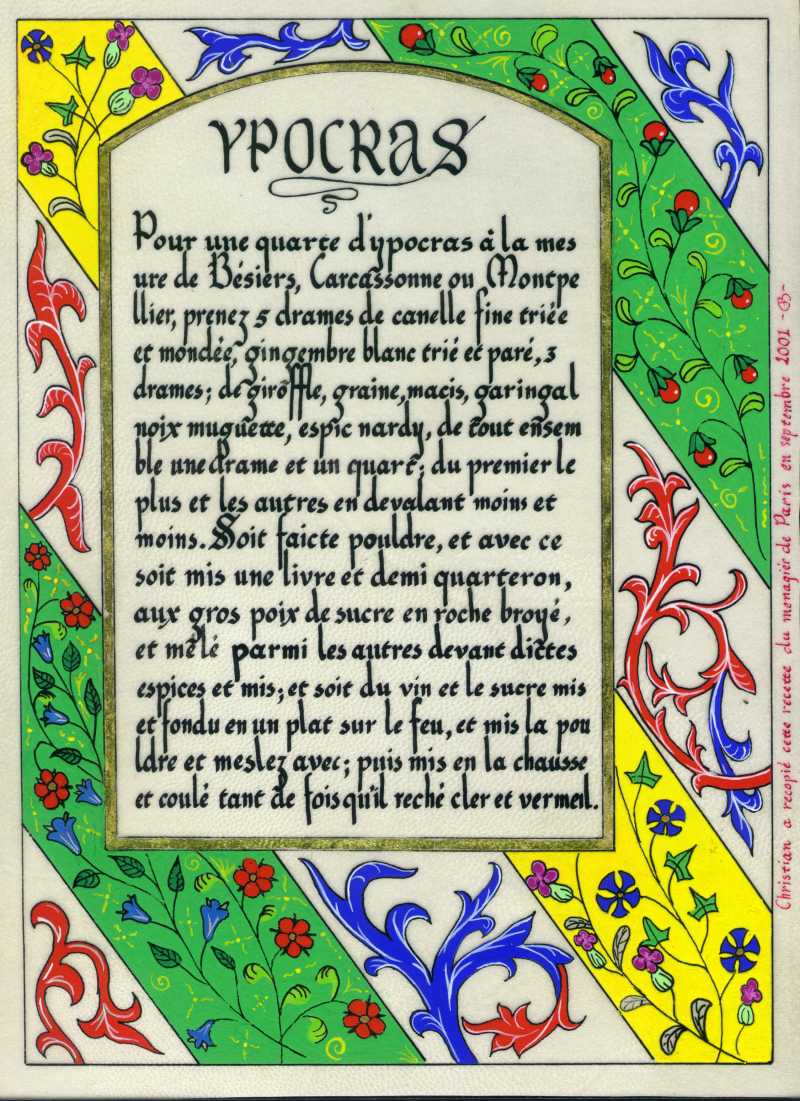 YPOCRAS
Pour une quarte d'ypocras à la mes
ure de Bésiers, Carcassonne ou Montpe
llier, prenez 5 drames de canelle fine triée
et mondée, gingembre blanc trié et paré, 3
drames; de giroffle, graine, macis, garingal
noix muguette, espic nardy, de tout ensem
ble une drame et un quart; du premier le
plus et les autres en devalant moins et
moins. Soit faicte pouldre, et avec ce
soit mis une livre et demi quarteron,
aux gros poix de sucre en roche broyé,
et mêlé parmi les autres devant dictes
espices et mis; et soit du vin et le sucre mis
et fondu en un plat sur le feu, et mis la pou
ldre et meslez avec; puis mis en la chausse
et coulé tant de fois qu'il reché cler et vermeil.
Christian a recopié cette recette du menagier de Paris en septembre 2001 -B-